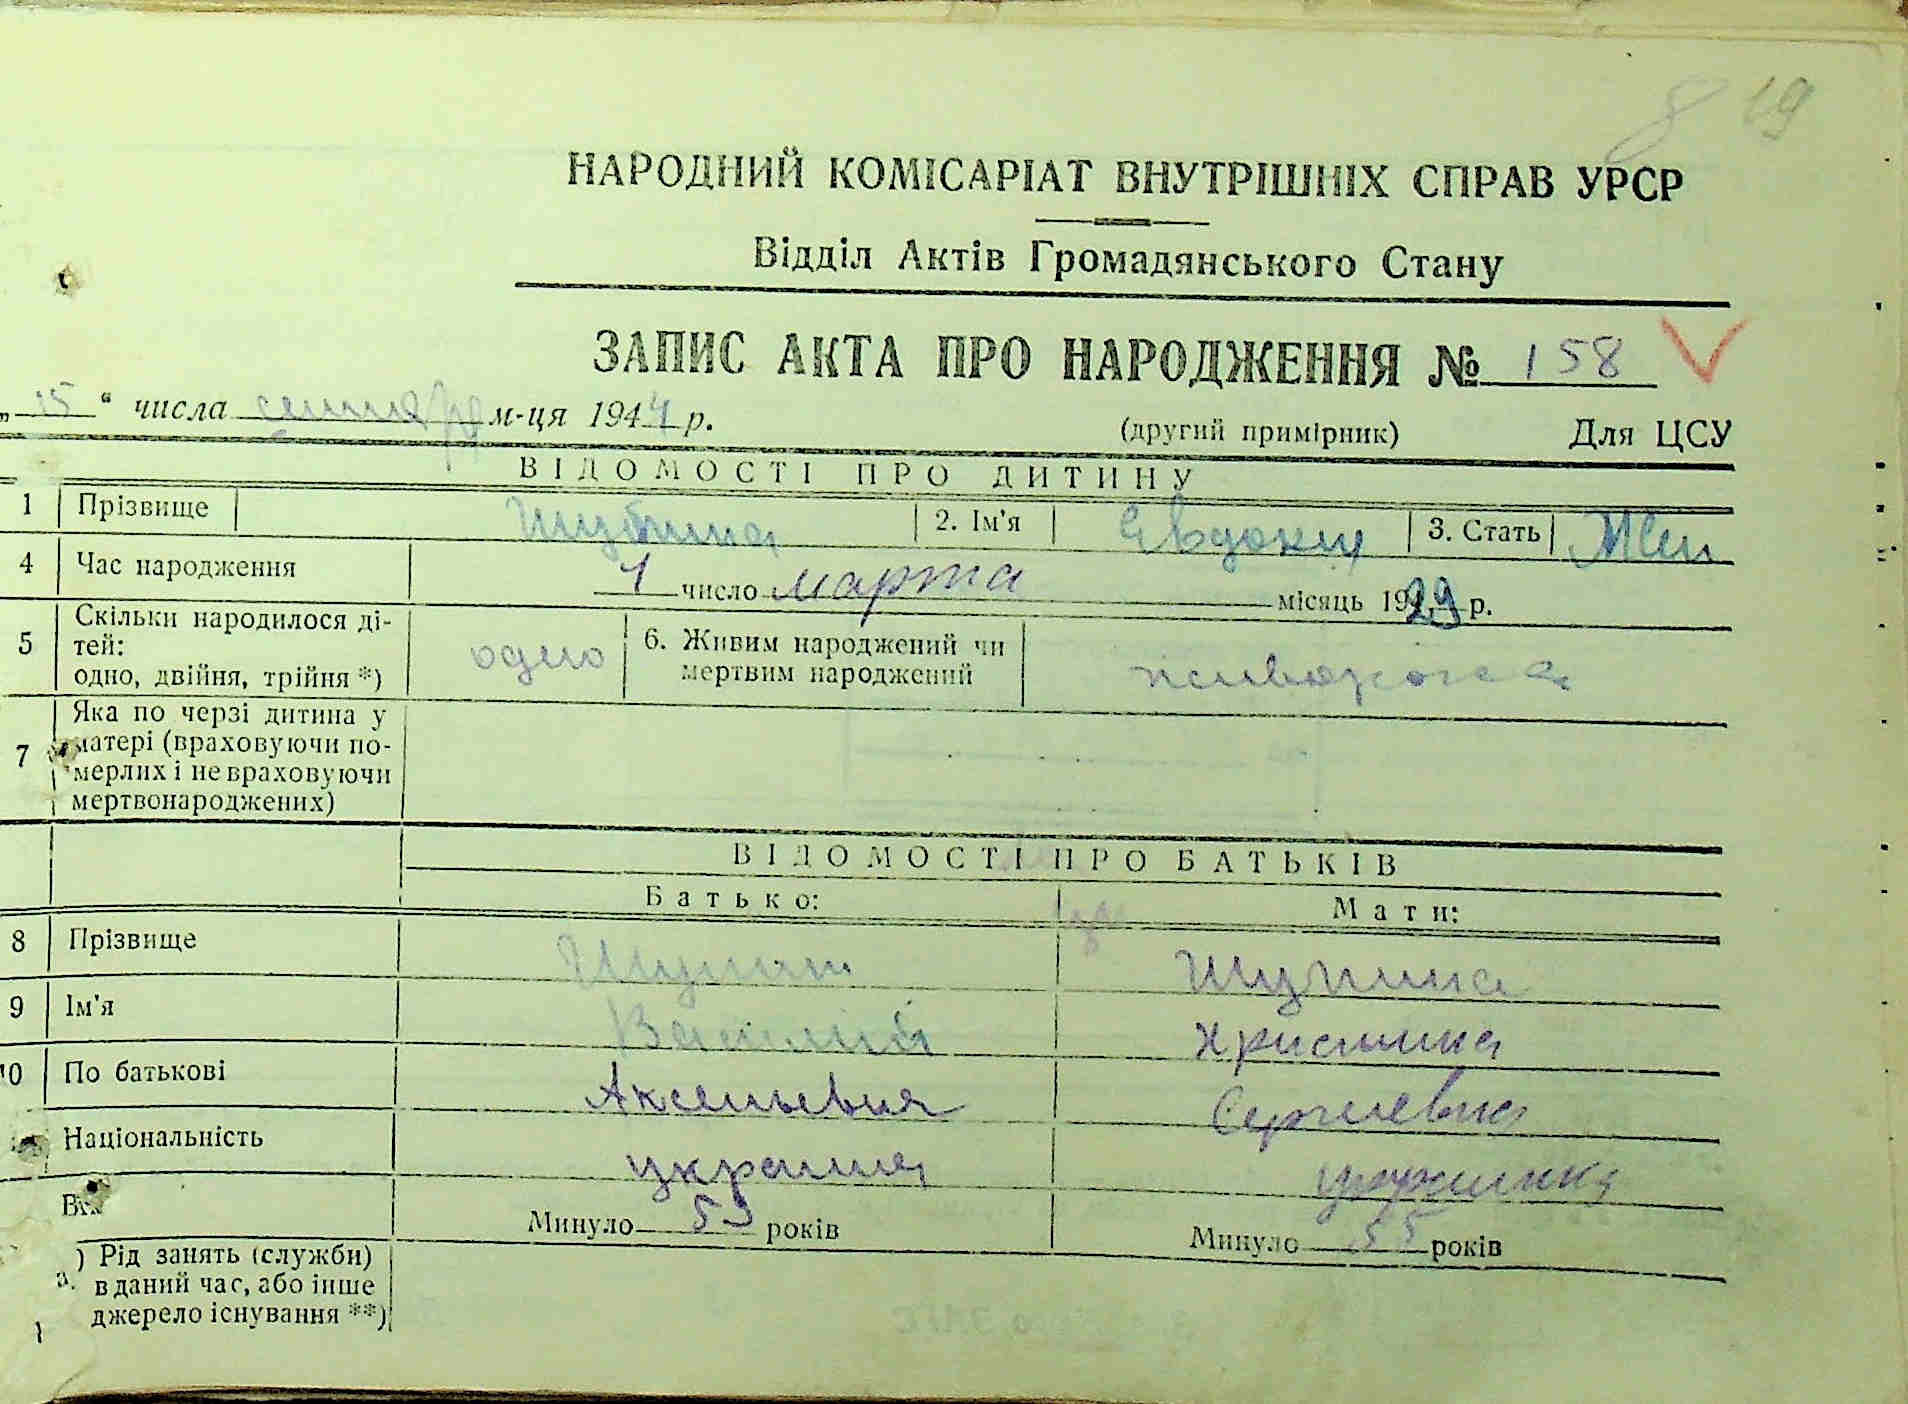 8 19
НАРОДНИЙ КОМІСАРІАТ ВНУТРІШНІХ СПРАВ УРСР
Відділ Актів Громадянського Стану
ЗАПИС АКТА ПРО НАРОДЖЕННЯ № 158
„ 15 “ числа сентября м-ця 1944 р.
(другий примірник) Для ЦСУ
ВІДОМОСТІ ПРО ДИТИНУ
1 Прізвище 2. Ім'я Євдокия 3. Стать Жен
4 Час народження 1 число марта місяць 1929 р.
5 Скільки народилося ді-
тей:
одно, двійня, трійня *) одно 6. Живим народжений чи
мертвим народжений
7 Яка по черзі дитина у
матері (враховуючи по-
мерлих і не враховуючи
мертвонароджених)
ВІДОМОСТІ ПРО БАТЬКІВ
Батько: Мати:
8 Прізвище
9 Ім'я Василий Христина
10 По батькові Сергиевна
Національність украинец украинка
Минуло 53 років Минуло 55 років
) Рід занять (служби)
в даний час, або інше
джерело існування **)